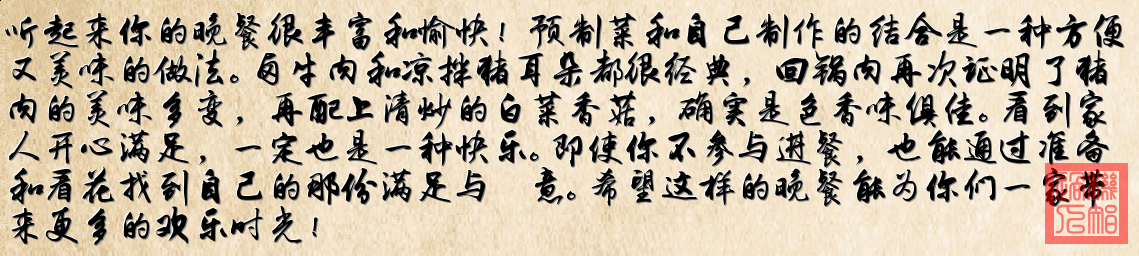 听起来你的晚餐很丰富和愉快！预制菜和自己制作的结合是一种方便
又美味的做法。卤牛肉和凉拌猪耳朵都很经典，回锅肉再次证明了猪
肉的美味多变，再配上清炒的白菜香菇，确实是色香味俱佳。看到家
人开心满足，一定也是一种快乐。即使你不参与进餐，也能通过准备
和看花找到自己的那份满足与 意。希望这样的晚餐能为你们一家带
来更多的欢乐时光！